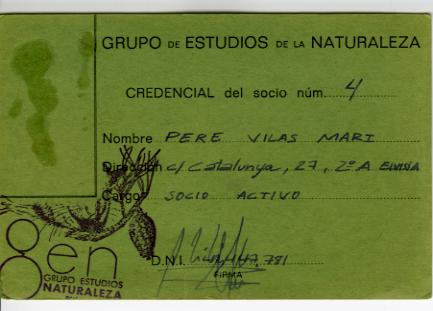 GRUPO DE ESTUDIOS DE LA NATURALEZA
CREDENCIAL del socio núm. 4
Nombre PERE VILAS MARI
Dirección c/ Catalunya, 27, 2º A EIVISSA
Cargo SOCIO ACTIVO
D.N.I.
FIRMA
gen
GRUPO ESTUDIOS
NATURALEZA